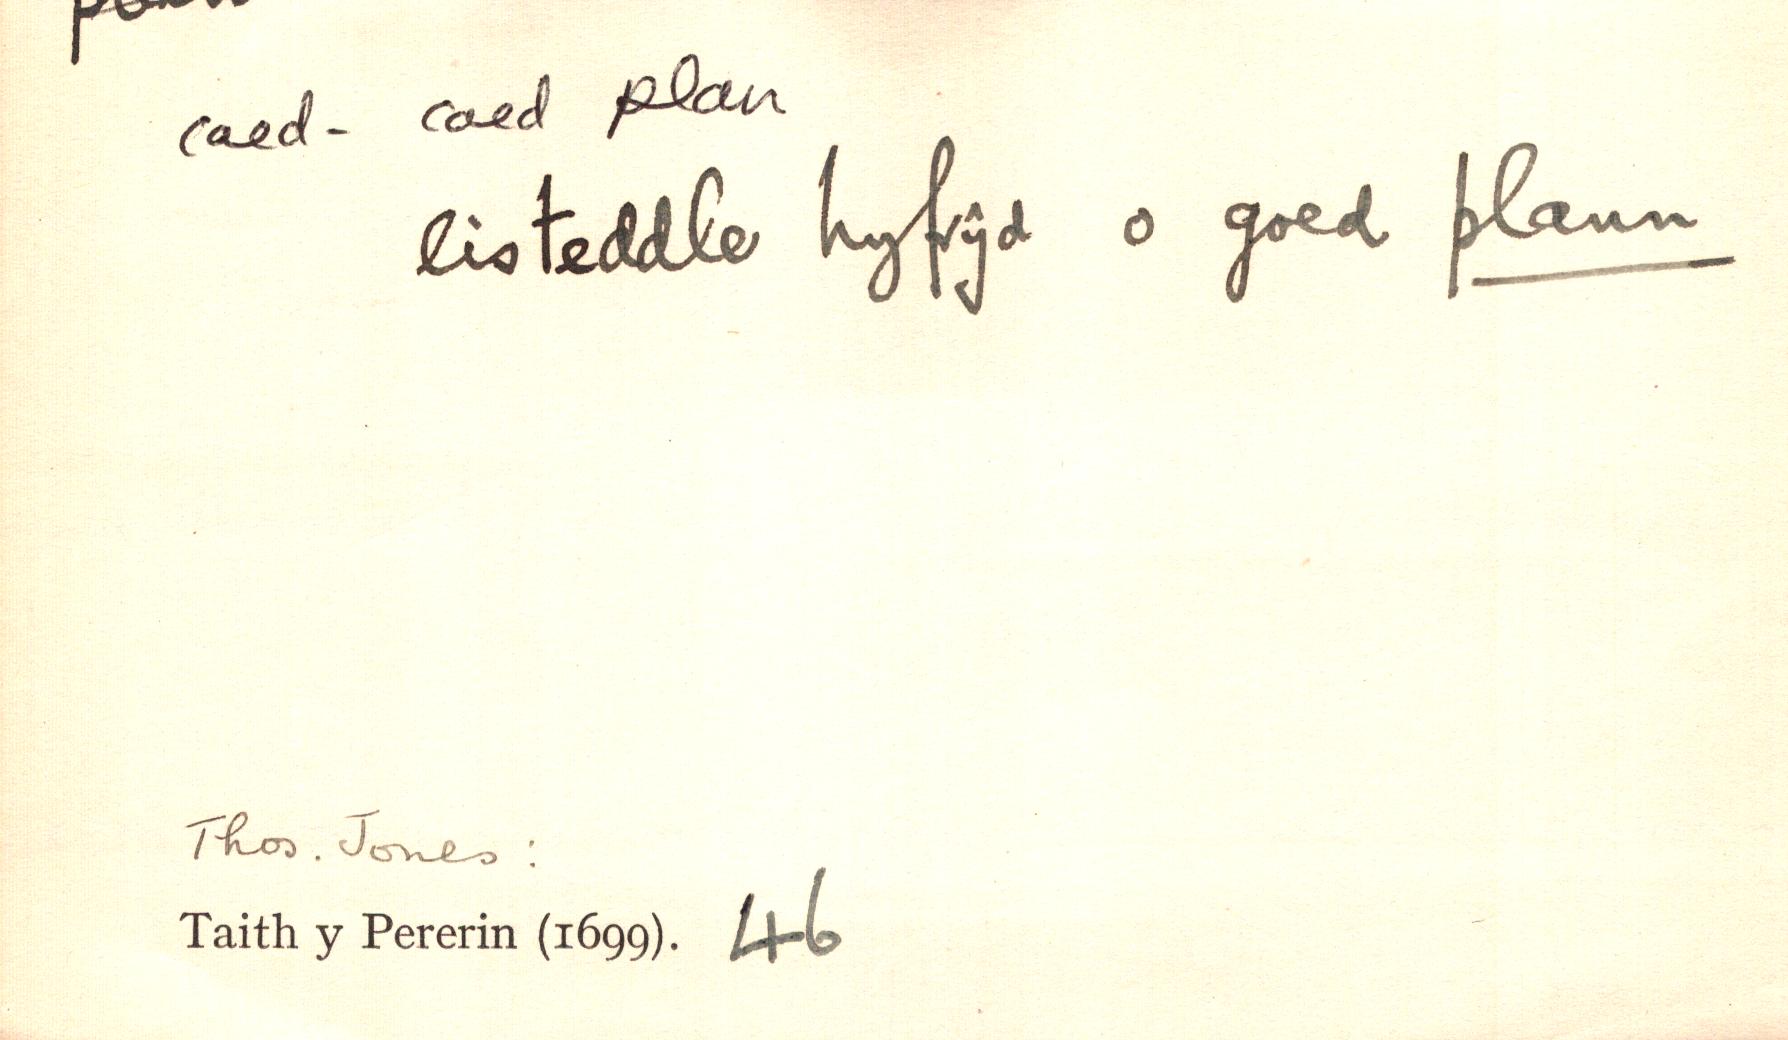 caed- coed plan
eisteddle hyfrŷd o goed plann
Thos. Jones:
Taith y Pererin (1699). 46